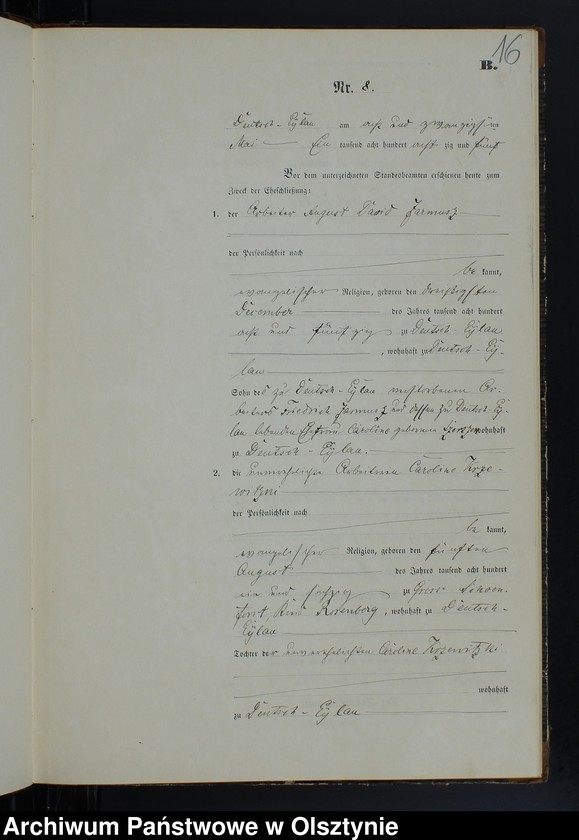 16
B.
Nr. 8.
Deutsch-Eylau am acht und zwanzigsten
Mai Ein tausend acht hundert acht zig und fünf
Vor dem unterzeichneten Standesbeamten erschienen heute zum
Zweck der Eheschließung:
1. der Arbeiter August David Jarmusz
der Persönlichkeit nach
be kannt,
evangelischer Religion, geboren den dreißigsten
December des Jahres tausend acht hundert
acht und fünfzig zu Deutsch-Eylau
, wohnhaft zu Deutsch-Ey-
lau
Sohn des zu Deutsch-Eylau verstorbenen Ar-
beiters Friedrich Jarmusz und dessen zu Deutsch Ey-
lau lebenden Ehefrau Caroline geborene wohnhaft
zu Deutsch-Eylau.
2. die unverehelichte Arbeiterin Caroline Krze-
witzki
der Persönlichkeit nach
be kannt,
evangelischer Religion, geboren den fünften
August des Jahres tausend acht hundert
ein und sechzig zu Gross Schoen-
forst, Kreis Rosenberg, wohnhaft zu Deutsch-
Eylau
Tochter der unverehelichten Caroline Krzewitzki
wohnhaft
zu Deutsch-Eylau
Archiwum Państwowe w Olsztynie